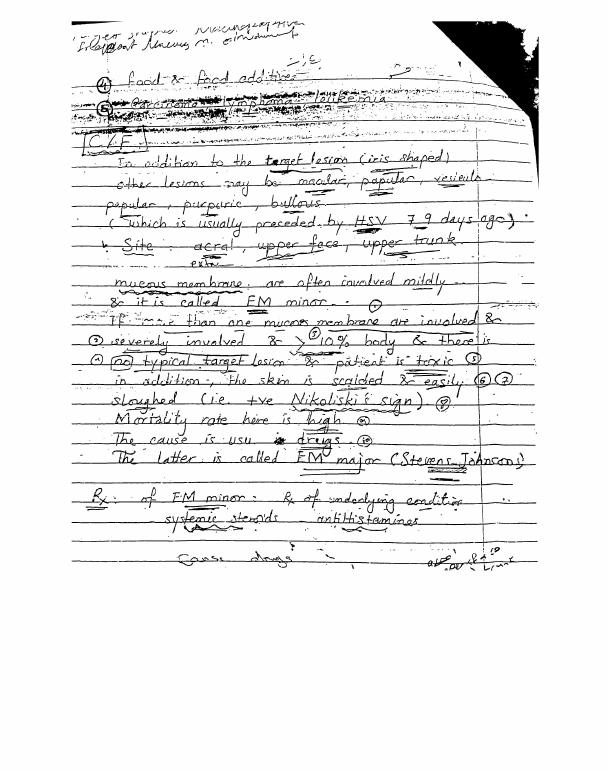 ④ food & food additives
⑤ Carcinoma lymphoma leukemia
C/F
In addition to the target lesion (iris shaped)
other lesions may be macular, papular, vesiculo
papular, purpuric, bullous
(which is usually preceded by HSV 7 9 days ago) .
Site : acral, upper face, upper trunk
mucous membrane are often involved mildly
& it is called EM minor. . ①
If more than one mucous membrane are involved &
② severely involved & ③ > 10% body & there is
④ no typical target lesion & patient is toxic ⑤
in addition, the skin is scalded & easily ⑥ ⑦
sloughed (i.e. +ve Nikoliski's sign) ⑧
Mortality rate here is high ⑨
The cause is usu drugs ⑩
The latter is called EM major (Stevens Johnsons)
Rx : of EM minor : Rx of underlying condition
systemic steroids antiHistamines
Cause drugs